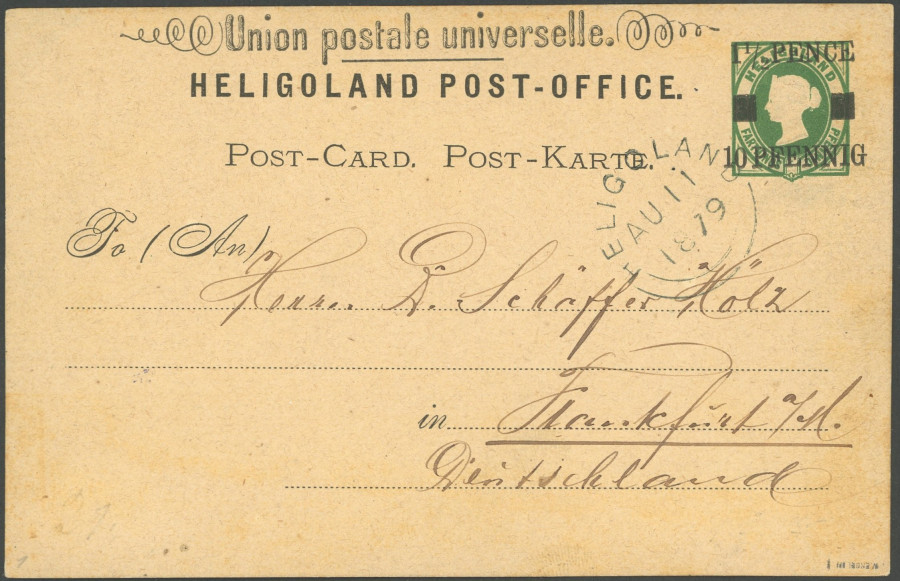 Union postale universelle.
HELIGOLAND POST-OFFICE.
1½ PENCE
HELIGOLAND
10 PFENNIG
POST-CARD. POST-KARTE.
HELIGOLAND
AU 11
1879
To (An)
Herrn D. Schäffer Hölz
in Frankfurt a/M.
Deutschland